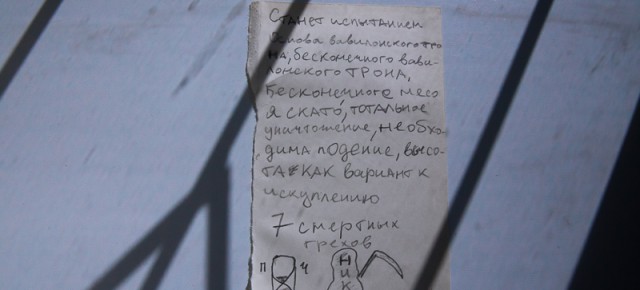 Станет испытанием
основа вавилонского тро
на, бесконечного вави-
лонского трона,
бесконечное мясо
я скато, тотальное
уничтожение, необхо-
дима подение, высо-
та как вариант к
искуплению
7 смертных
грехов
п ч
ник